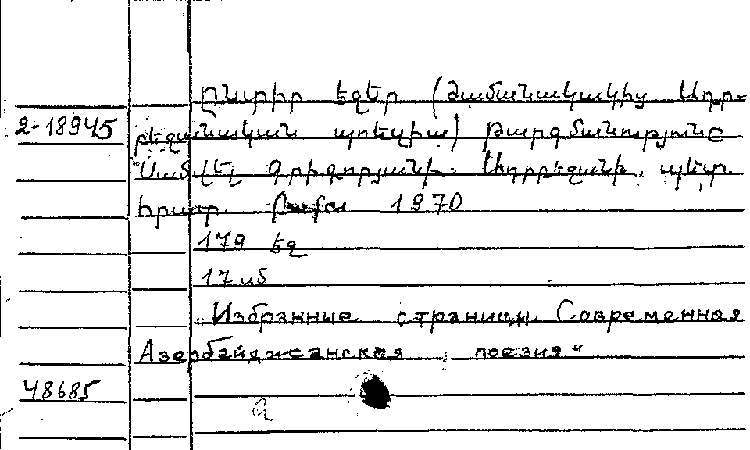 Ընտիր եջեր (Ժամանակակից Ադր-
2-18945 բեջանական պոեզիա) Թարգմանությունը
Սամվել Գրիգորյանի. Ադրբեջանի պետ.
հրատ. Բաքու 1970
179 եջ
17 սմ
„Избранные страницы. Современная
Азербайджанская поэзия“
48685